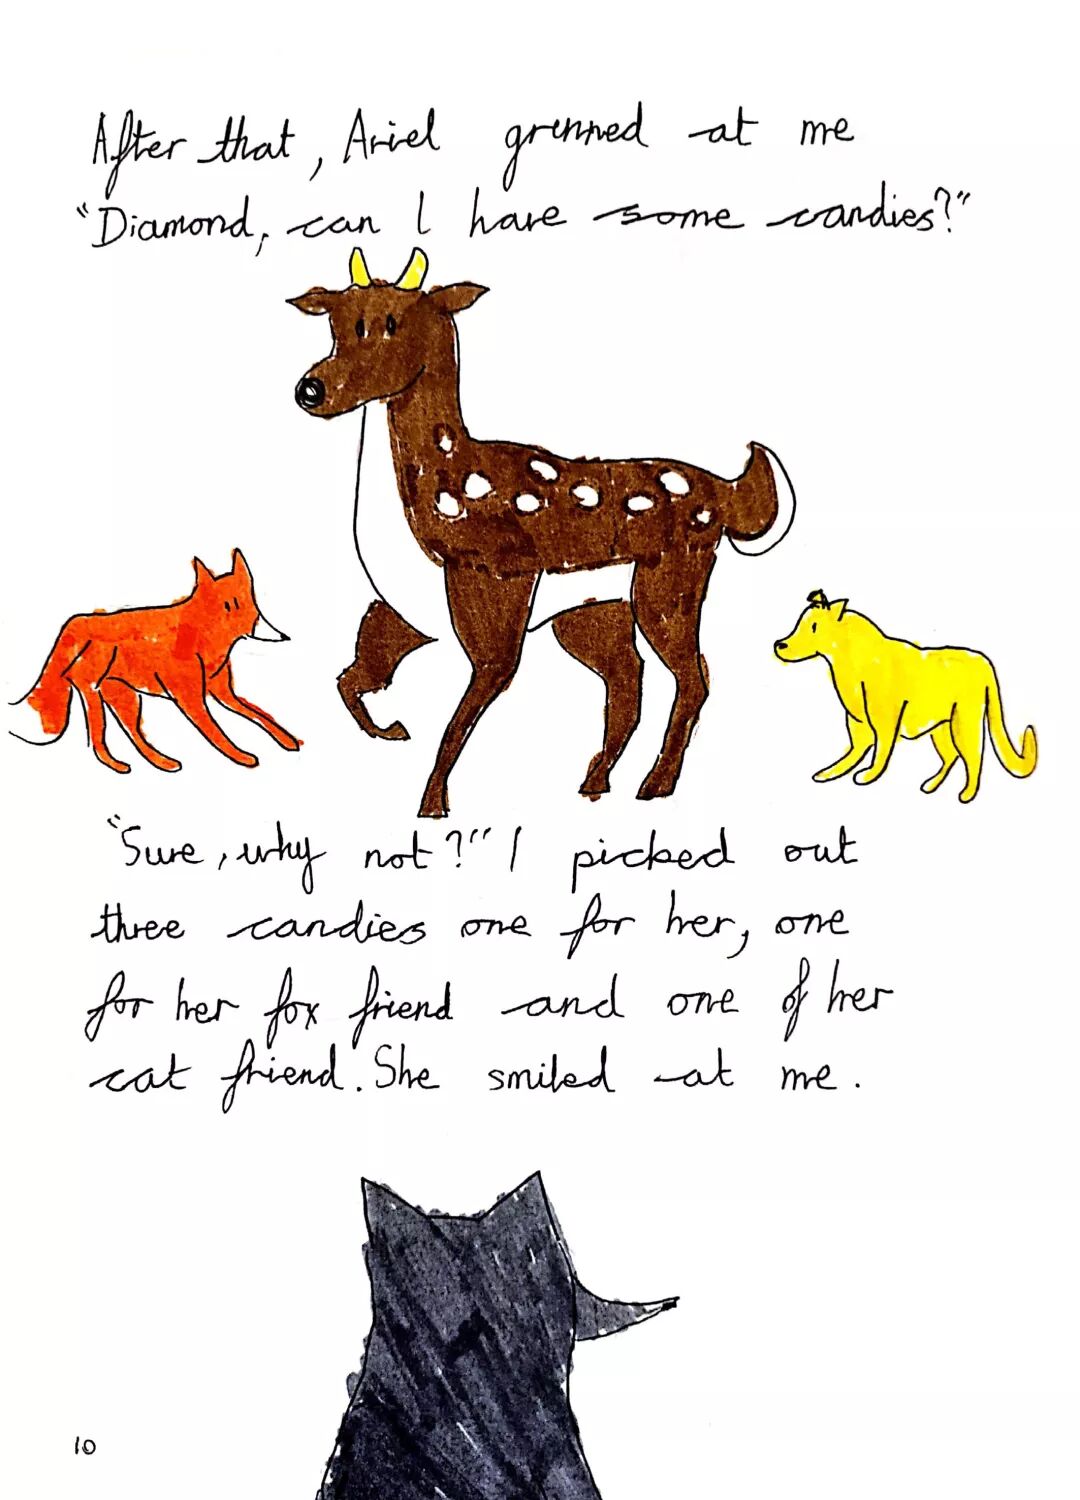 After that, Ariel grinned at me
"Diamond, can I have some candies?"
"Sure, why not?" I picked out
three candies one for her, one
for her fox friend and one of her
cat friend. She smiled at me.
10